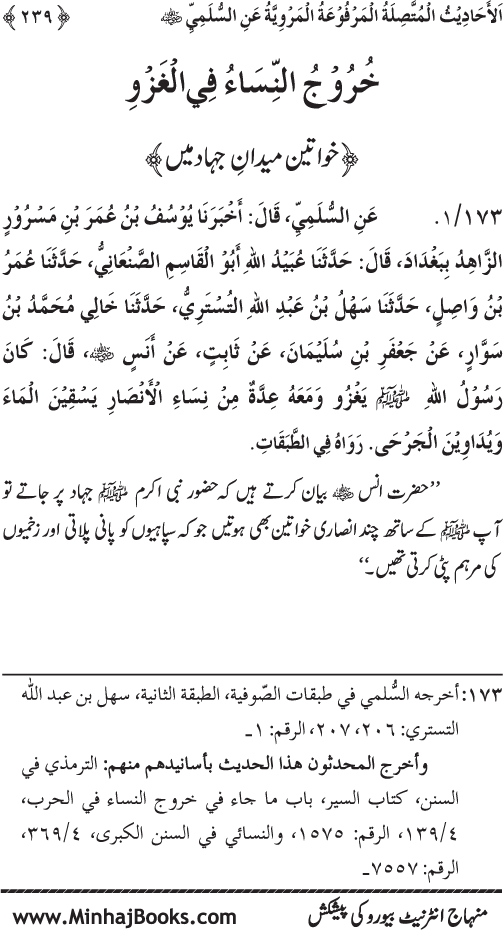 اَلأَحَادِيْثُ الْمُتَّصِلَةُ الْمَرْفُوْعَةُ الْمَرْوِيَّةُ عَنِ السُّلَمِيِّ ﷺ ﴿٢٣٩﴾
خُرُوْجُ النِّسَاءُ فِي الْغَزْوِ
﴿خواتین میدانِ جہاد میں﴾
١/١٧٣. عَنِ السُّلَمِيِّ، قَالَ: أَخْبَرَنَا يُوْسُفُ بْنُ عُمَرَ بْنِ مَسْرُوْرٍ
الزَّاهِدُ بِبَغْدَادَ، قَالَ: حَدَّثَنَا عُبَيْدُ اللهِ أَبُوْ الْقَاسِمِ الصَّنْعَانِيُّ، حَدَّثَنَا عُمَرُ
بْنُ وَاصِلٍ، حَدَّثَنَا سَهْلُ بْنُ عَبْدِ اللهِ التُّسْتَرِيُّ، حَدَّثَنَا خَالِي مُحَمَّدُ بْنُ
سَوَّارٍ، عَنْ جَعْفَرِ بْنِ سُلَيْمَانَ، عَنْ ثَابِتٍ، عَنْ أَنَسٍ ﷺ، قَالَ: كَانَ
رَسُوْلُ اللهِ ﷺ يَغْزُو وَمَعَهُ عِدَّةٌ مِنْ نِسَاءِ الْأَنْصَارِ يَسْقِيْنَ الْمَاءَ
وَيُدَاوِيْنَ الْجَرْحَى. رَوَاهُ فِي الطَّبَقَاتِ.
’’حضرت انس ﷺ بیان کرتے ہیں کہ حضور نبی اکرم ﷺ جہاد پر جاتے تو
آپ ﷺ کے ساتھ چند انصاری خواتین بھی ہوتیں جو کہ سپاہیوں کو پانی پلاتی اور زخمیوں
کی مرہم پٹی کرتی تھیں۔‘‘
١٧٣: أخرجه السُّلمي في طبقات الصّوفية، الطبقة الثانية، سهل بن عبد الله
التستري: ٢٠٦، ٢٠٧، الرقم: ١ـ
وأخرج المحدثون هذا الحديث بأسانيدهم منهم: الترمذي في
السنن، كتاب السير، باب ما جاء في خروج النساء في الحرب،
٤/١٣٩، الرقم: ١٥٧٥، والنسائي في السنن الكبرى، ٤/٣٦٩،
الرقم: ٧٥٥٧ـ
منہاج انٹرنیٹ بیورو کی پیشکش www.MinhajBooks.com